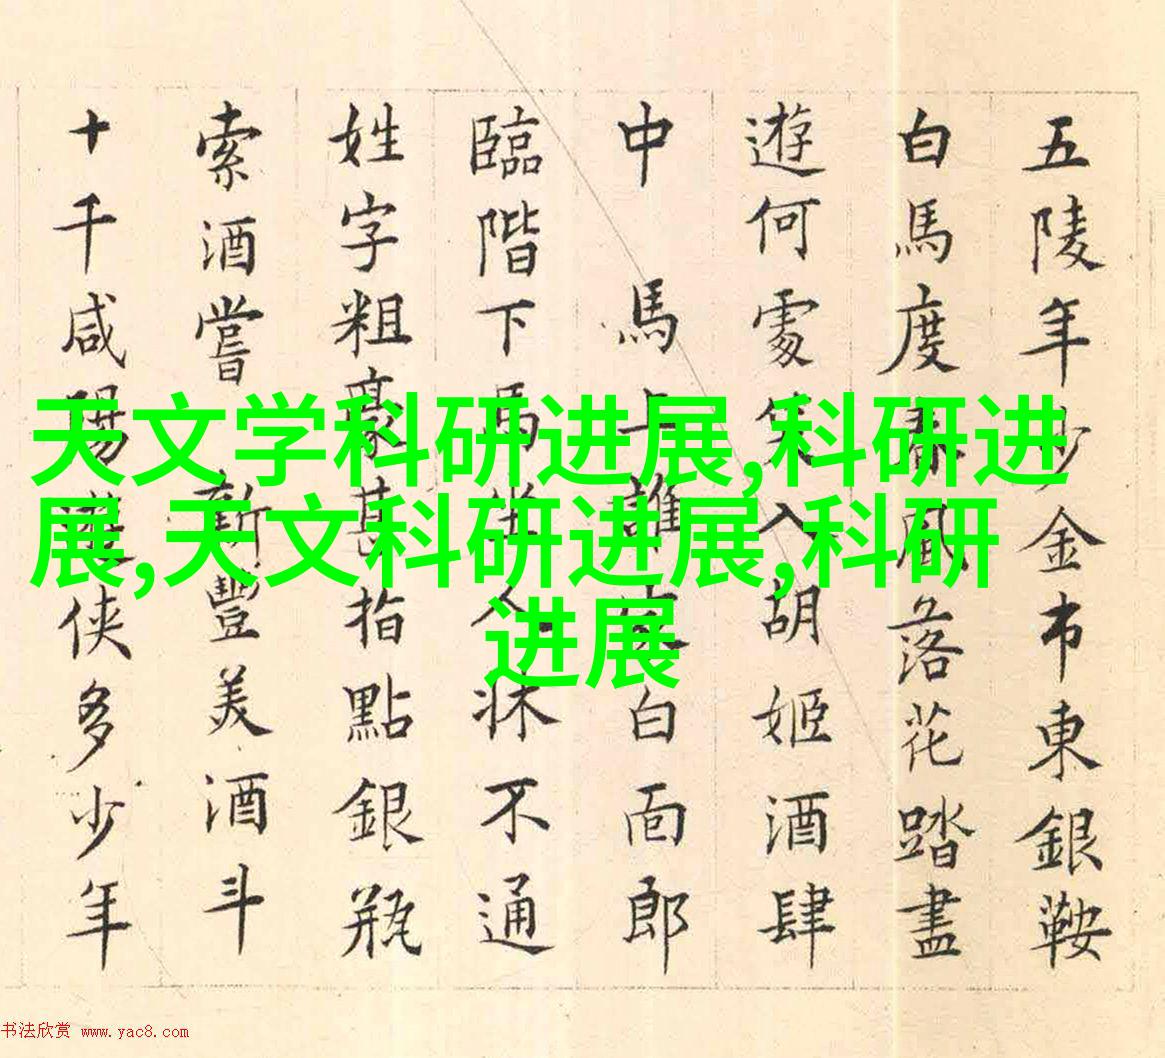 五陵年少金市東銀鞍
白馬度春風落花踏盡
遊何處笑入胡姬酒肆
中 馬上誰家白面郎
臨階下馬坐人牀不通
姓字粗豪甚指點銀瓶
索酒嘗 新豐美酒斗
十千咸陽遊俠多少年
天文学科研进展,科研进
展,天文科研进展,科研
进展
书法欣赏 www.yac8.com